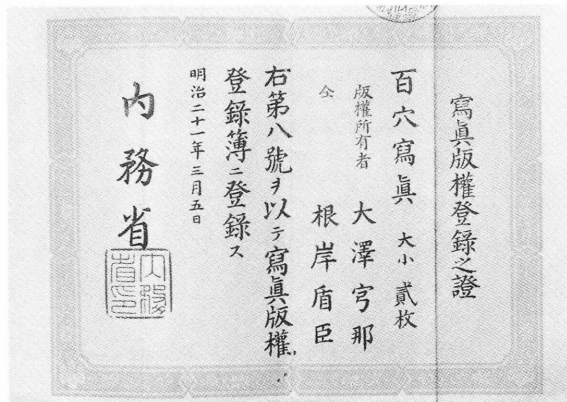 寫眞版權登錄之證
百穴寫眞 大小 貳枚
版權所有者 大澤宆那
仝 根岸盾臣
右第八號ヲ以テ寫眞版權
登錄簿ニ登錄ス
明治二十一年三月五日
內務省
內務省印